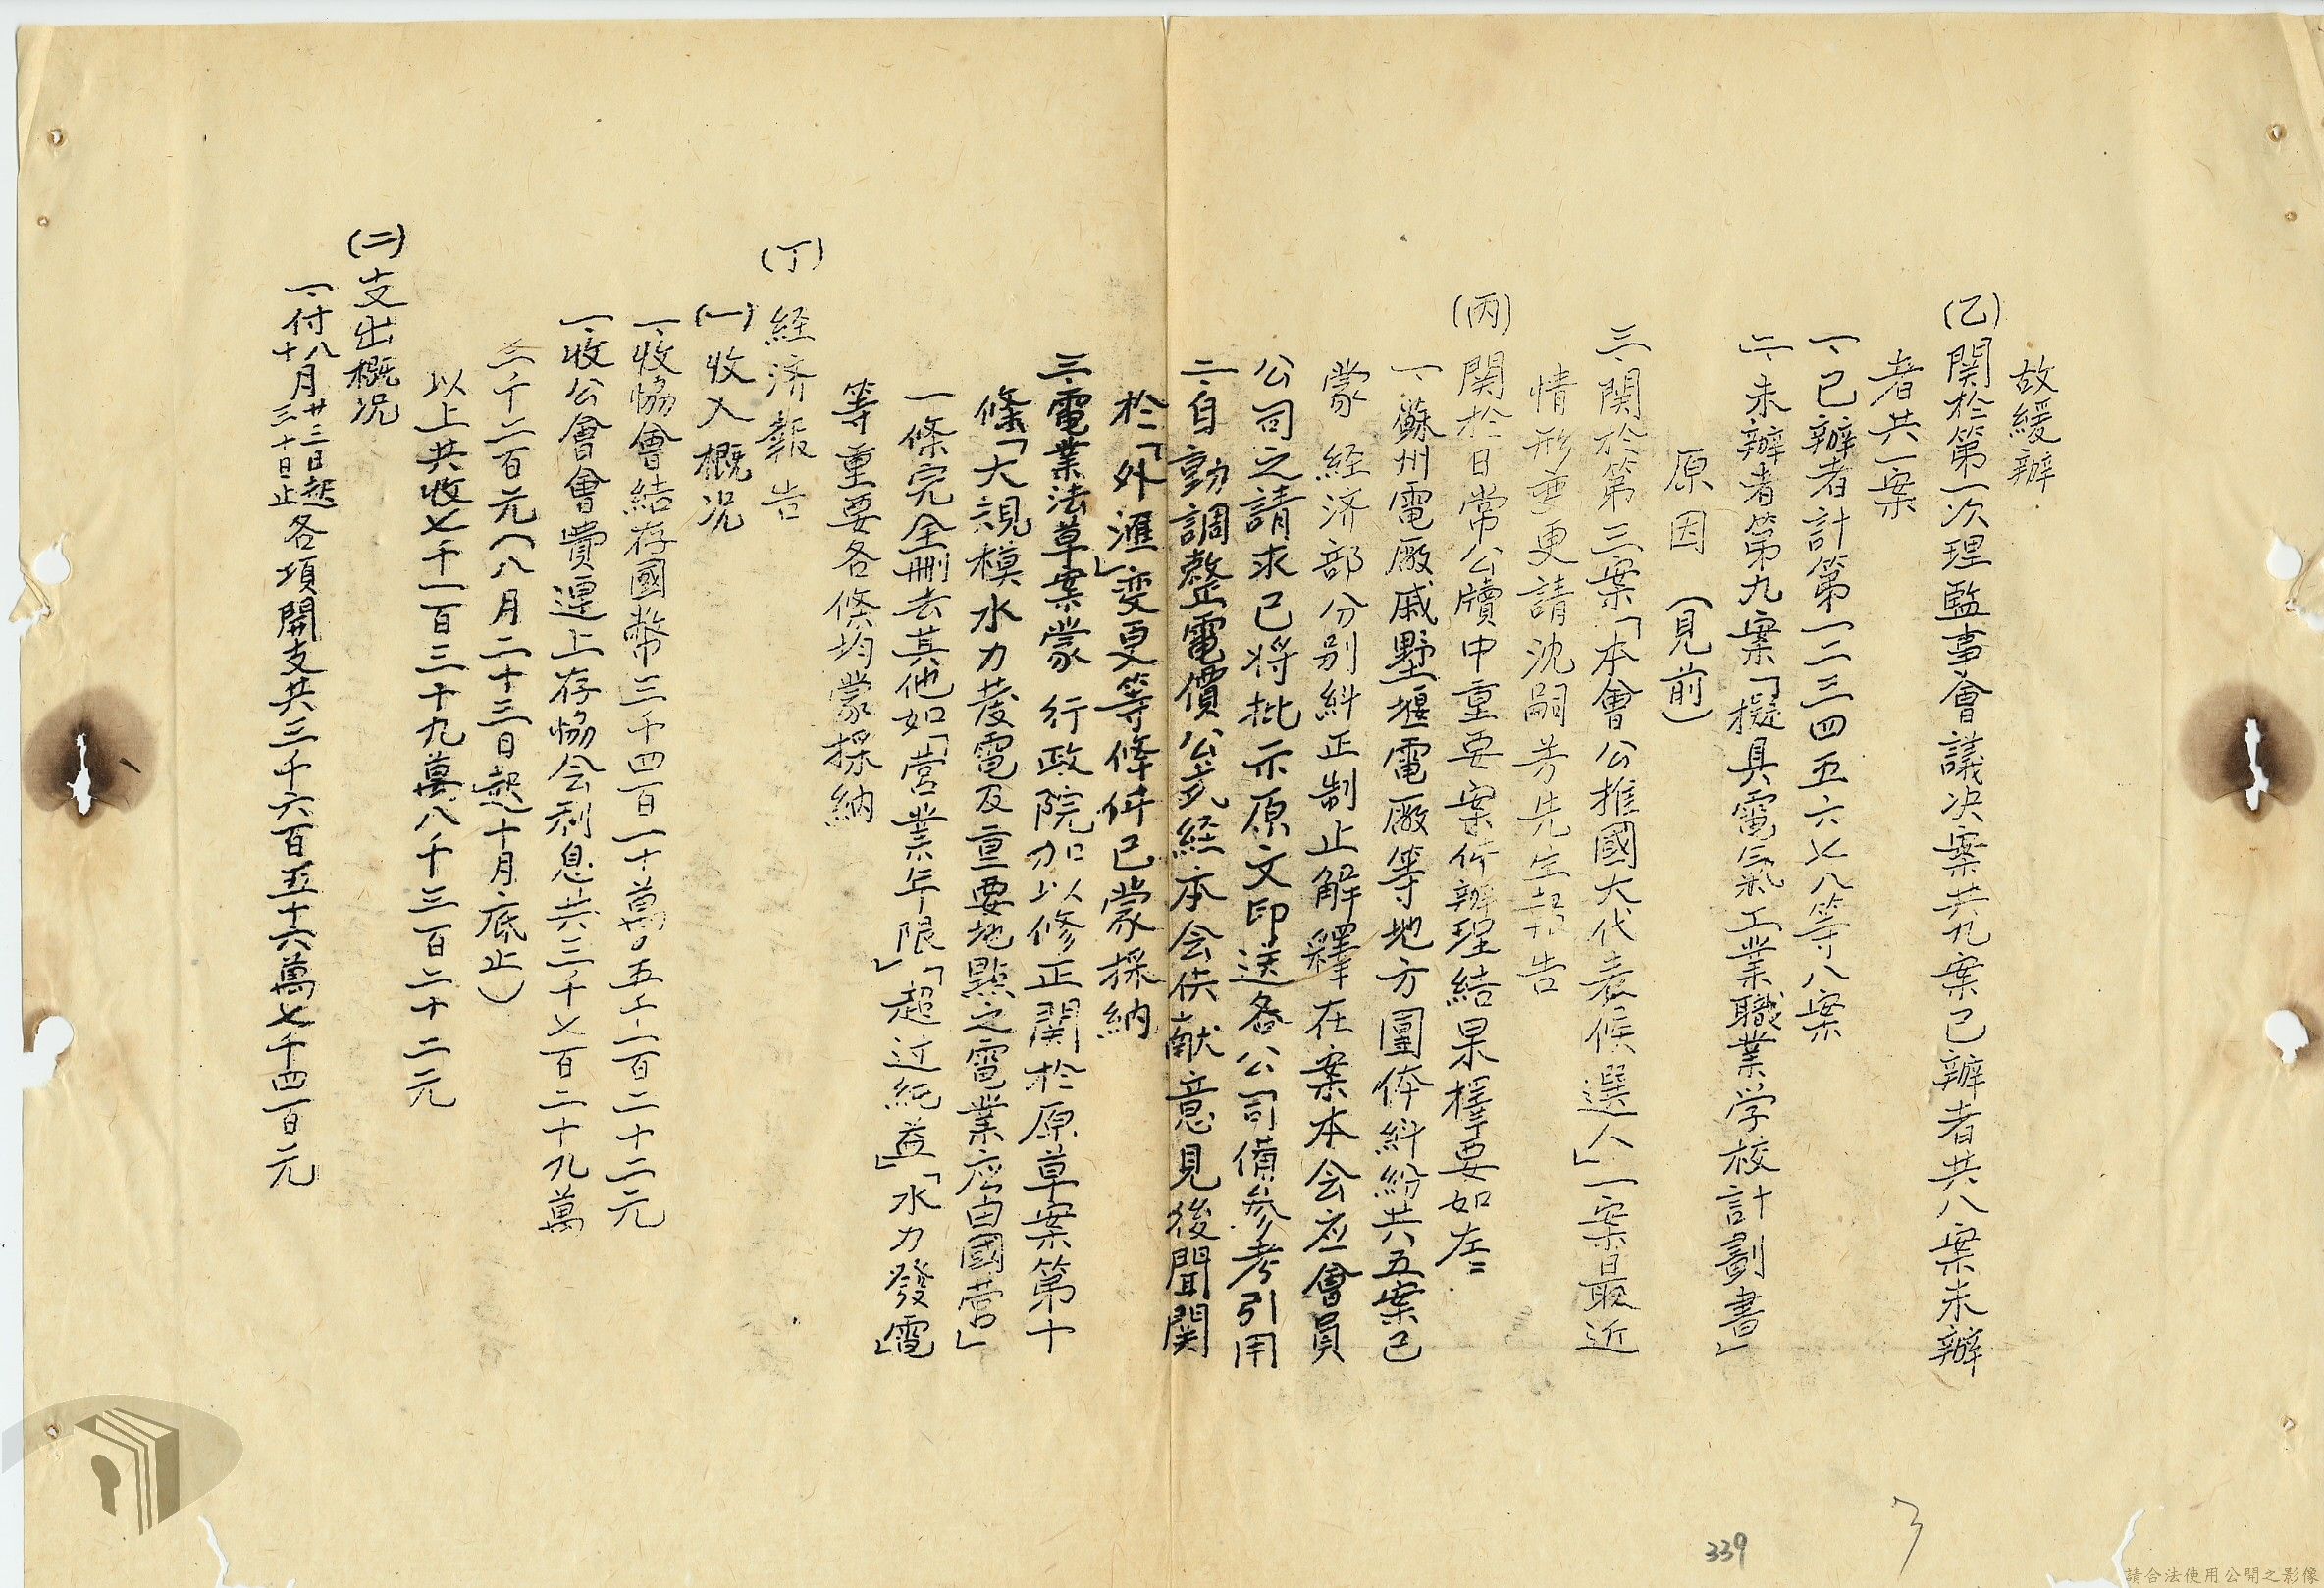 故緩辦
(乙)関於第一次理監事會議决案共九案已辦者共八案未辦
者共一案
一、已辦者計第一二三四五六七八等八案
二、未辦者第九案「擬具電氣工業職業学校計劃書」
原因(見前)
三、関於第三案「本會公推國大代表候選人」一案最近
情形並更請沈嗣芳先生報告
(丙)関於日常公牘中重要案件辦理結果擇要如左:
一、蘇州電廠戚墅堰電廠等地方團体糾紛共五案已
蒙 经济部分别糾正制止解釋在案本会应會員
公司之請求已将批示原文印送各公司備参考引用
二、自動調整電價公式経本会供献意見後聞関
於「外滙」变更等條件已蒙採納
三、電業法草案蒙 行政院加以修正関於原草案第十
條「大規模水力发電及重要地點之電業应由國营」
一條完全删去其他如「营業年限」「超过純益」「水力發電」
等重要各條均蒙採納
(丁)経济報告
(一)收入概况
一、收協會結存國幣三千四百一十萬〇五千一百二十二元
一、收公會會費連上存協会利息共三千七百二十九萬
三千二百元(八月二十三日起十月底止)
以上共收七千一百三十九萬八千三百二十二元
(二)支出概况
一、付八月廿三日起十月三十日止各項開支共三千六百五十六萬七千四百元
339
請合法使用公開之影像